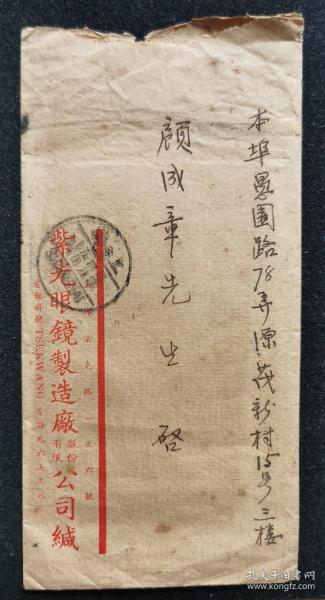 本埠愚園路78弄源茂新村15号三楼
顧成章先生啓
派克路一三六號
紫光眼鏡製造廠股份有限公司緘
TSEKWANG 電話九六七三八
孔夫子旧书网